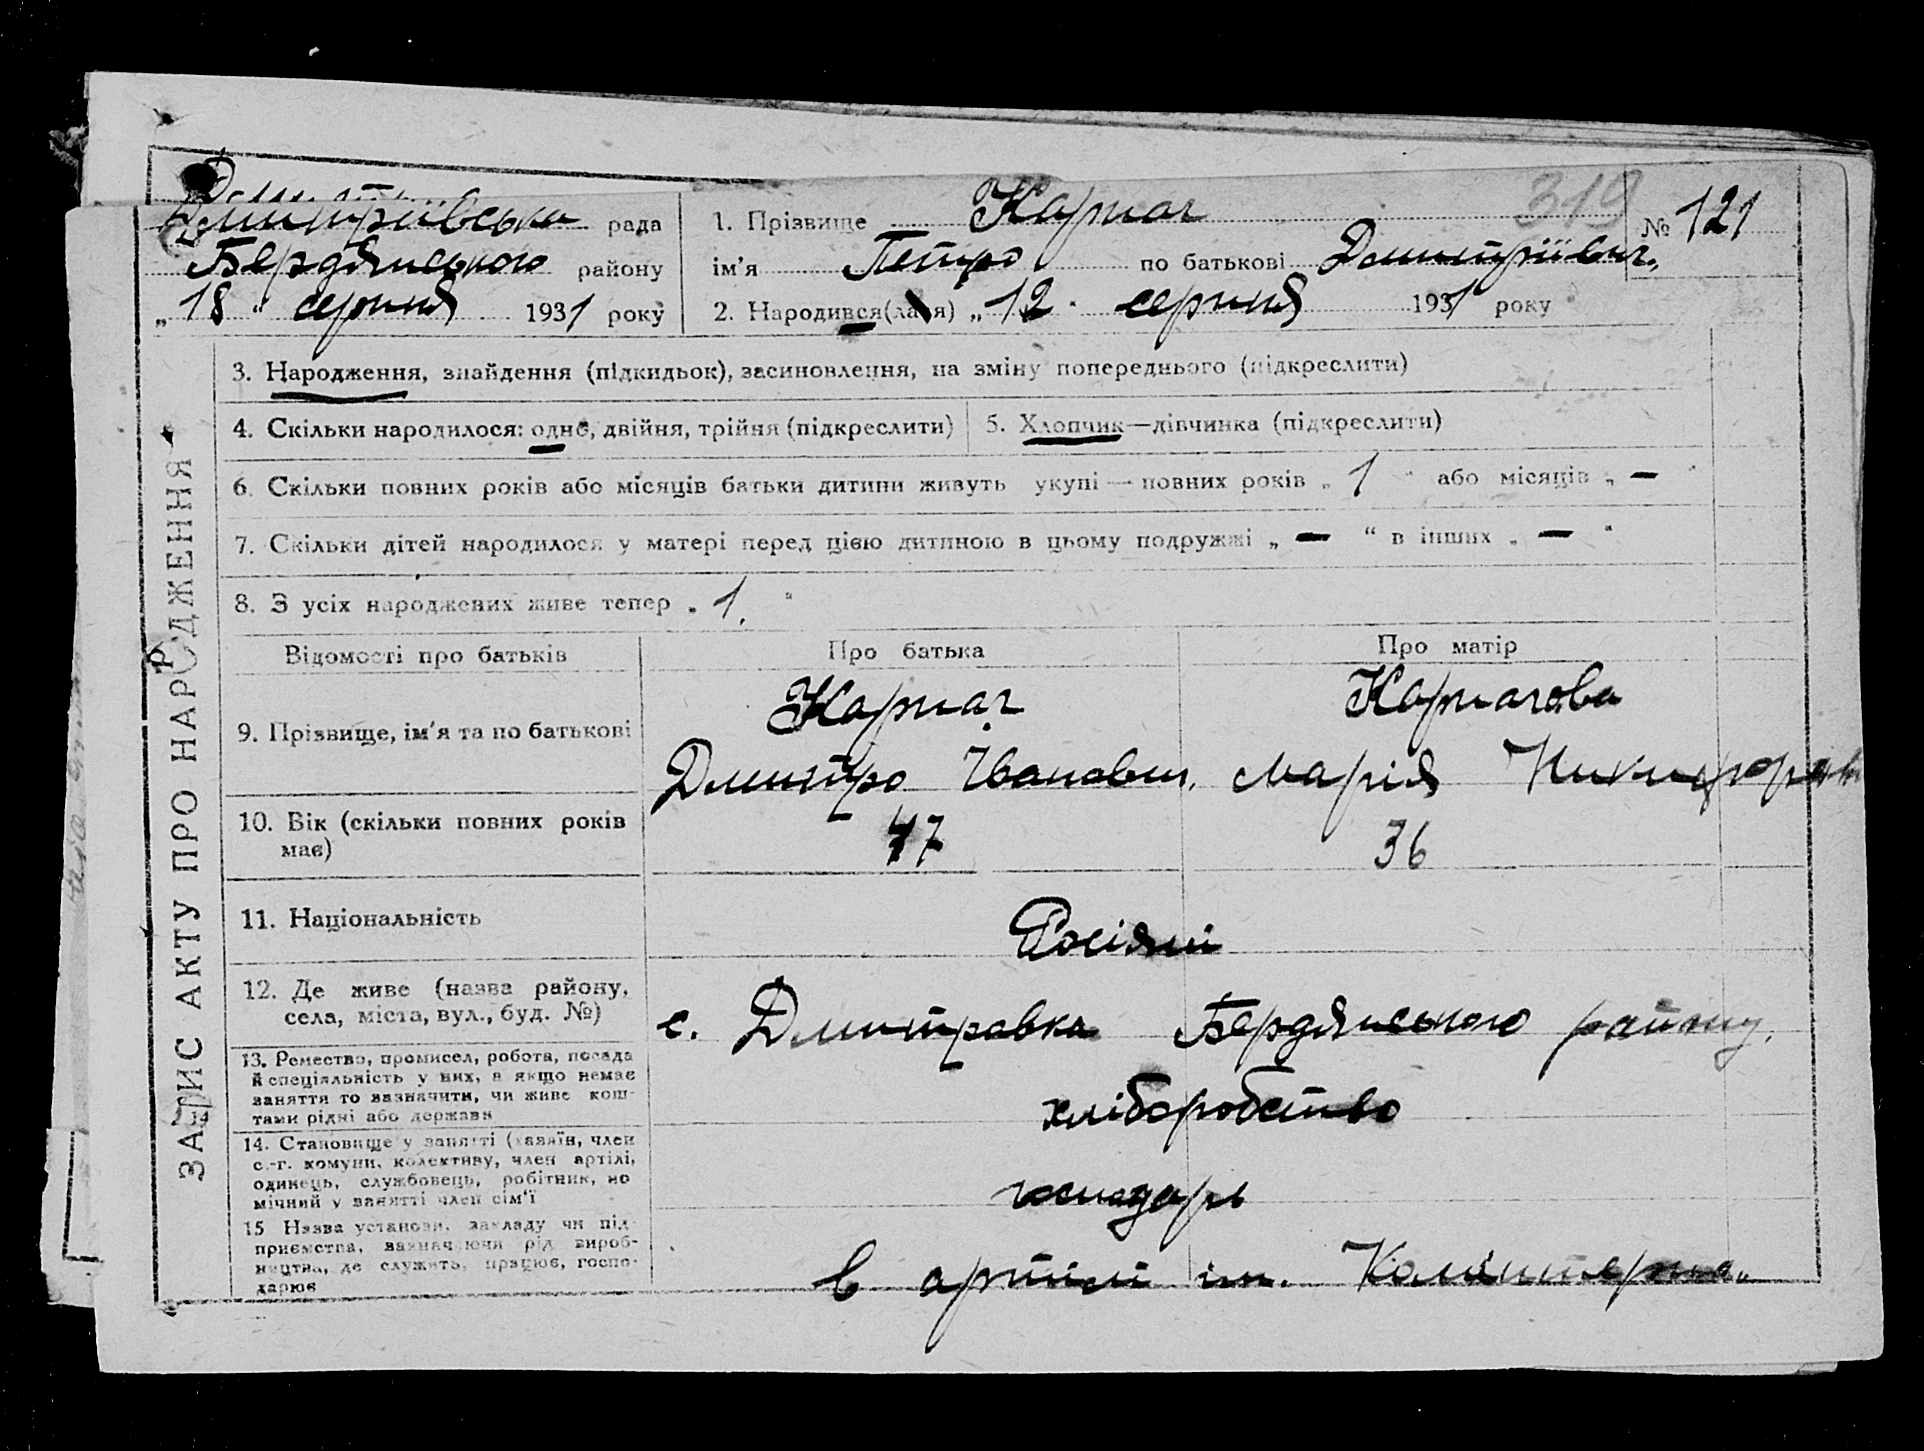 Дмитрівська рада
Бердянського району
„18“ серпня 1931 року
1. Прізвище Кармаг
ім'я Петро по батькові Дмитрієвич.
2. Народився(лася) „12“ серпня 1931 року
319
№ 121
ЗАПИС АКТУ ПРО НАРОДЖЕННЯ
3. Народження, знайдення (підкидьок), засиновлення, на зміну попереднього (підкреслити)
4. Скільки народилося: одне, двійня, трійня (підкреслити)
5. Хлопчик—дівчинка (підкреслити)
6. Скільки повних років або місяців батьки дитини живуть укупі — повних років „1“ або місяців „—“
7. Скільки дітей народилося у матері перед цією дитиною в цьому подружжі „—“ в інших „—“
8. З усіх народжених живе тепер „1.“
Відомості про батьків Про батька Про матір
9. Прізвище, ім'я та по батькові
Кармаг Кармагова
Дмитро Іванович. Марія
10. Вік (скільки повних років має)
47 36
11. Національність
Росіяні
12. Де живе (назва району, села, міста, вул., буд. №)
с. Дмитровка Бердянського району.
13. Ремество, промисел, робота, посада й спеціяльність у них, а якщо немає заняття то зазначити, чи живе коштами рідні або держави
хліборобство
14. Становище у занятті (хазяїн, член с.-г. комуни, колективу, член артілі, одинець, службовець, робітник, помічний у занятті член сім'ї
господарь
15 Назва установи, закладу чи підприємства, зазначаючи рід виробництва, де служить, працює, господарює
в артілі ім. Комінтерна„